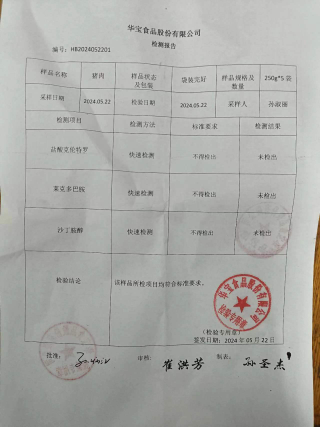 华宝食品股份有限公司
检测报告
编号：HB2024052201
样品名称 猪肉 样品状态及包装 袋装完好 样品规格及数量 250g*5袋
采样日期 2024.05.22 检验日期 2024.05.22 采样人 孙淑丽
检测项目 检测方法 标准要求 检测结果
盐酸克伦特罗 快速检测 不得检出 未检出
莱克多巴胺 快速检测 不得检出 未检出
沙丁胺醇 快速检测 不得检出 未检出
检验结论 该样品所检项目均符合标准要求。
华宝食品股份有限公司
检验专用章
（检验专用章）
签发日期：2024年05月22日
批准： 审核：崔洪芳 制表：孙圣杰